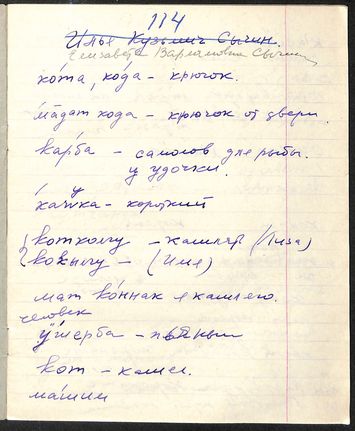 114
Илья Кузьмич Сычин.
Елизавета Варламовна Сычин
ко́та, кода – крючок.
ма̄дат кода – крючок от двери.
карба – самолов для рыбы.
у удочки.
качука – короткий
котколгу – кашлять (Лиза)
кокылгу – (Илья)
мат ко́ннак я кашляю.
человек
ӱ́терба – пьяный
кот – кашел.
машим